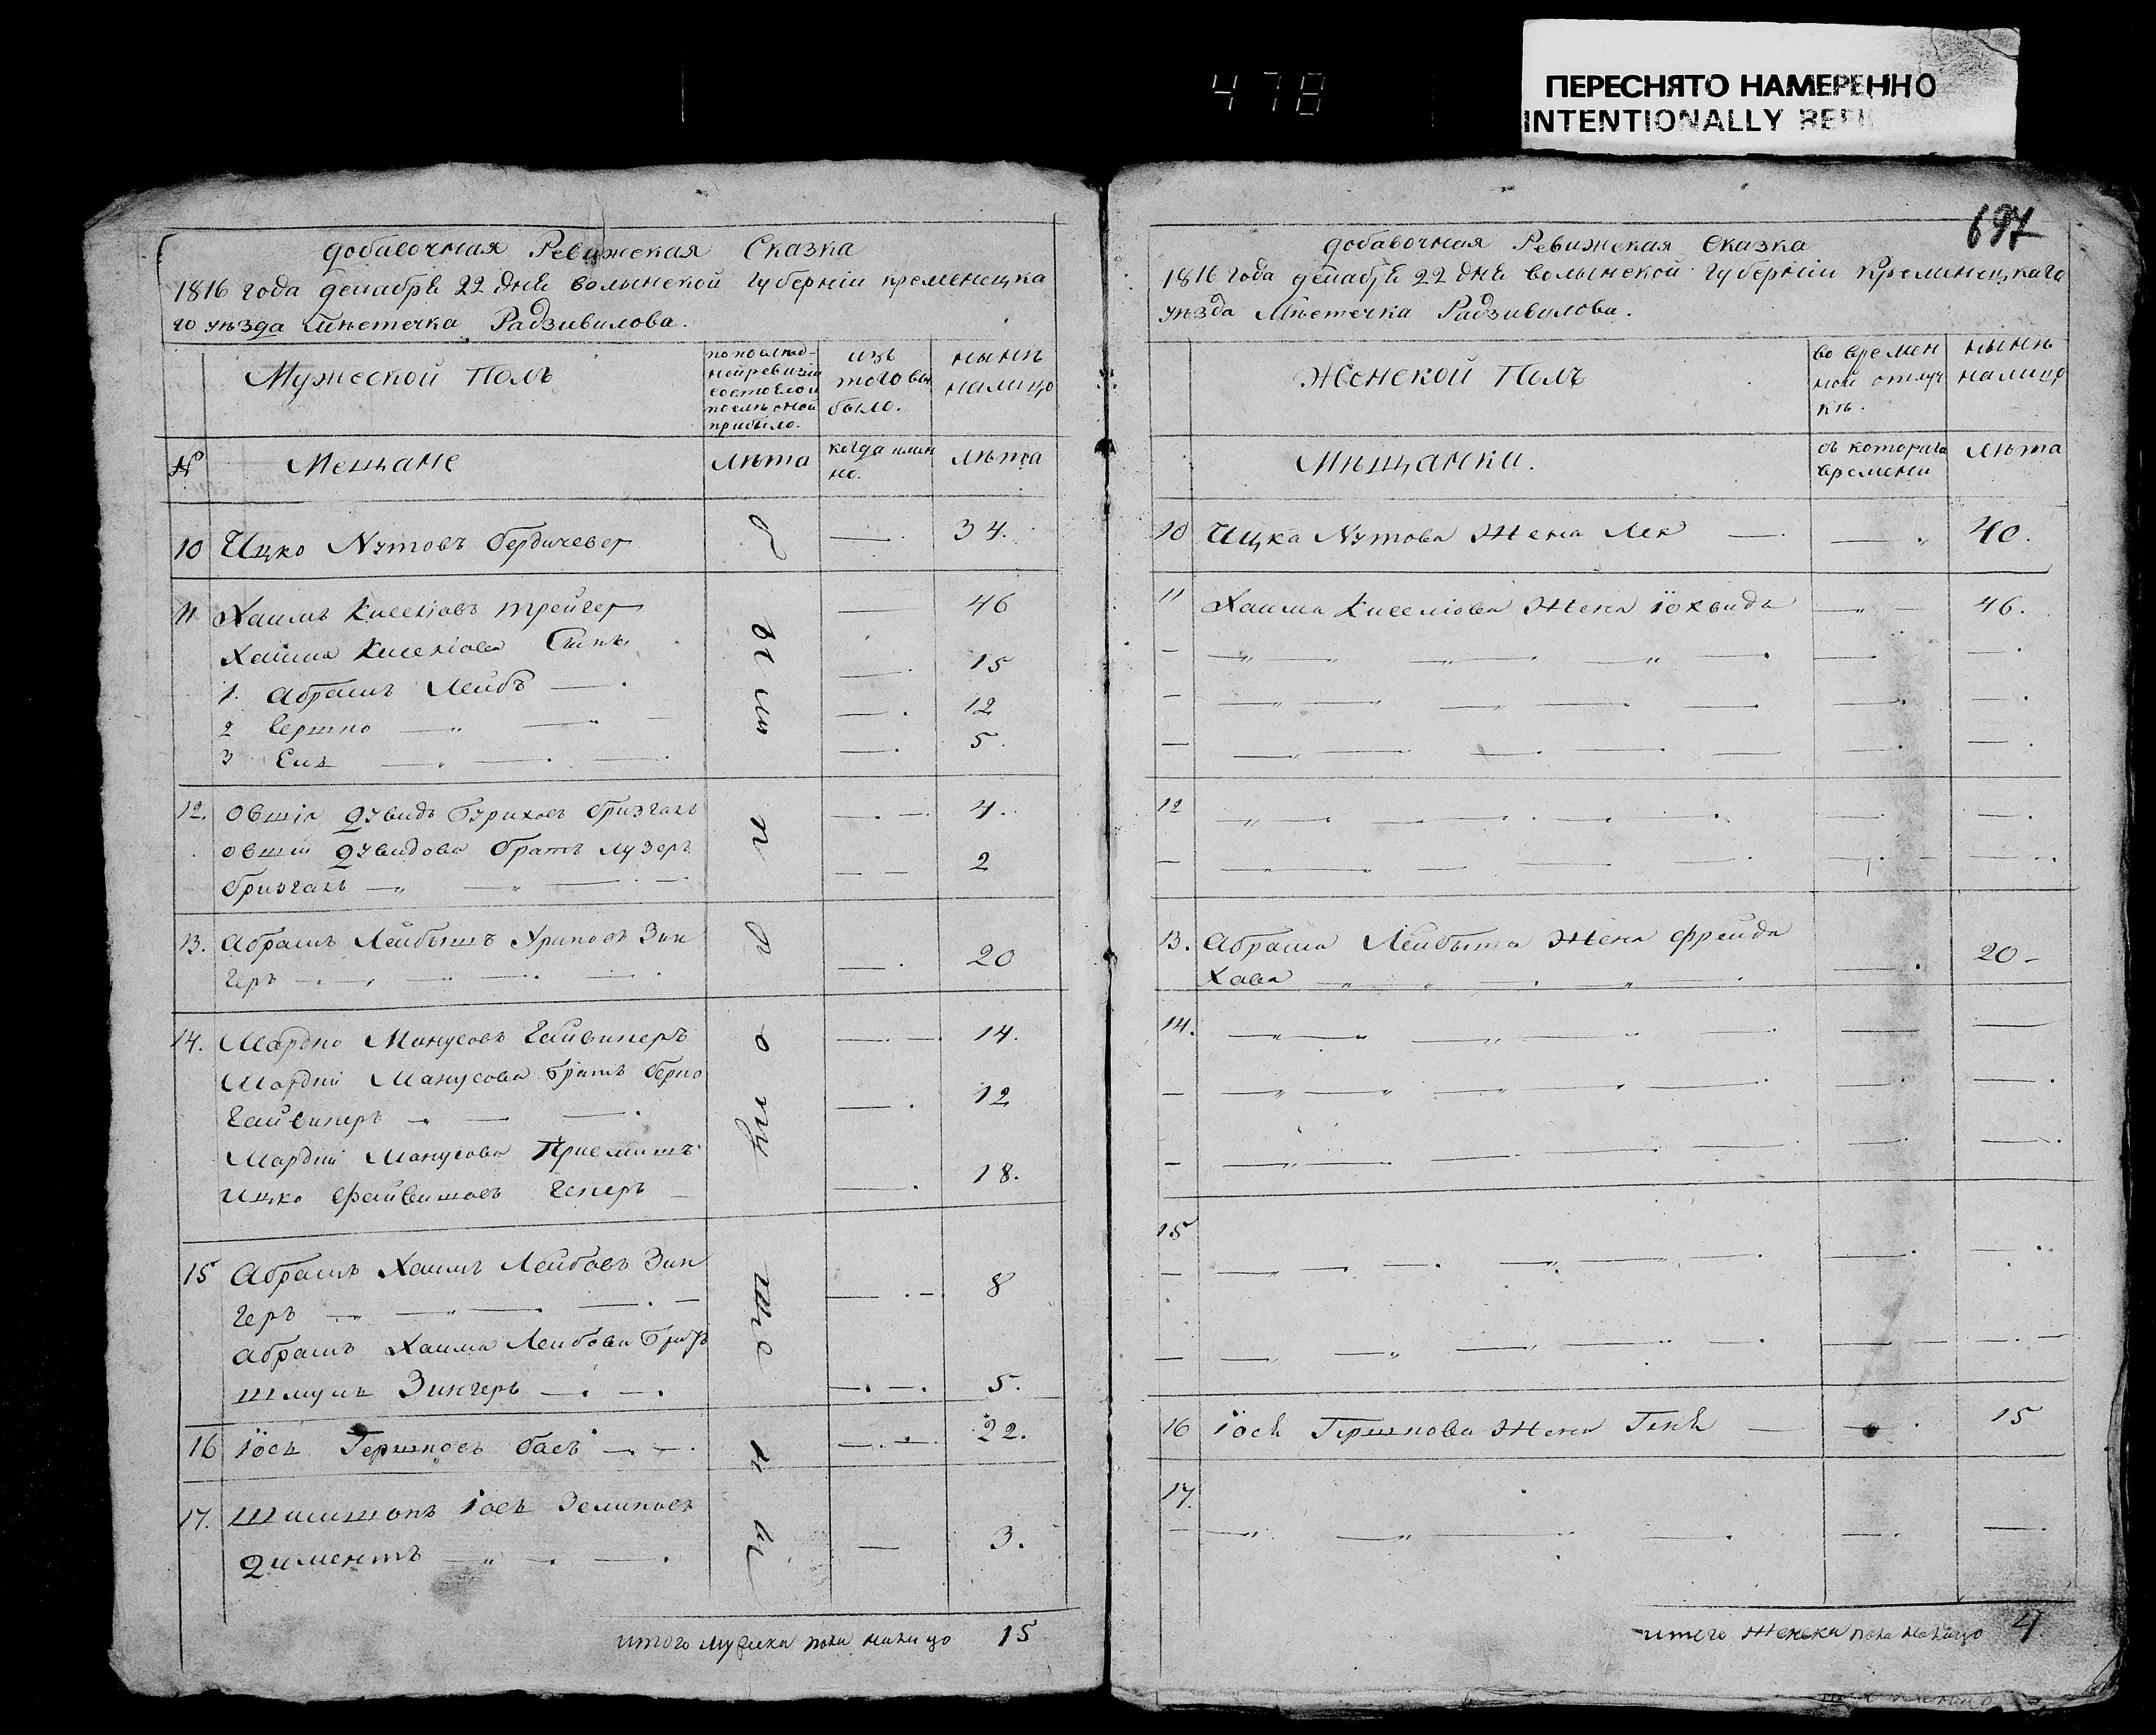 478
ПЕРЕСНЯТО НАМЕРЕННО
INTENTIONALLY REFI
добавочная Ревижская Сказка
1816 года декабря 22 дня волынской губернiи кременецка
го уѣзда Мѣстечка Радзивилова.
Мужеской Полъ
по послѣд-
ней ревизiи
состояло и
послѣ оной
прибыло.
изъ
того вы
было.
нынѣ
налицо
№
Мещане
лѣта
когда имян
но.
лѣта
10 Ицко Нутовъ бердичевер 34.
11 Хаимъ Киселiовъ трейгер 46
Хаима Киселiова Сынъ
1. Абрамъ Лейбъ 15
2 Гершко 12
3 Елз 5.
12. Овшiя Дувидъ Бурихов бризгаль 4.
Овшiи Дувидова братъ Лузеръ 2
бризгаль
13. Абрамъ Лейбышъ Уриновъ Зин
геръ 20
14. Мардко Манусовъ Гайвинеръ 14.
Мардки Манусова братъ берко
Гайвинеръ 12
Мардки Манусова Приемышъ
Ицко Файвишовъ Генеръ 18.
15 Абрамъ Хаимъ Лейбовъ Зин
геръ 8
Абрамъ Хаима Лейбова братъ
Шмуль Зингеръ 5.
16 Iось Гершковъ басъ 22.
17. Шимшонъ Iось Зеликовъ
Диментъ 3.
итого мужска пола налицо 15
697
добавочная Ревижская Сказка
1816 года декабря 22 дня волынской губернiи Кременецкаго
уѣзда Мѣстечка Радзивилова.
Женской Полъ
во времен
ной отлуч
кѣ.
нынѣ
налицо
Мѣщанки.
съ котораго
времени
лѣта
10 Ицка Нутова Жена Лея 40.
11 Хаима Киселiова Жена Iохвидъ 46.
12
13. Абрама Лейбыша Жена Фрейда
Хава 20
14.
15
16 Iося Гершкова Жена Геня 15
17.
итого Женска пола налицо 4